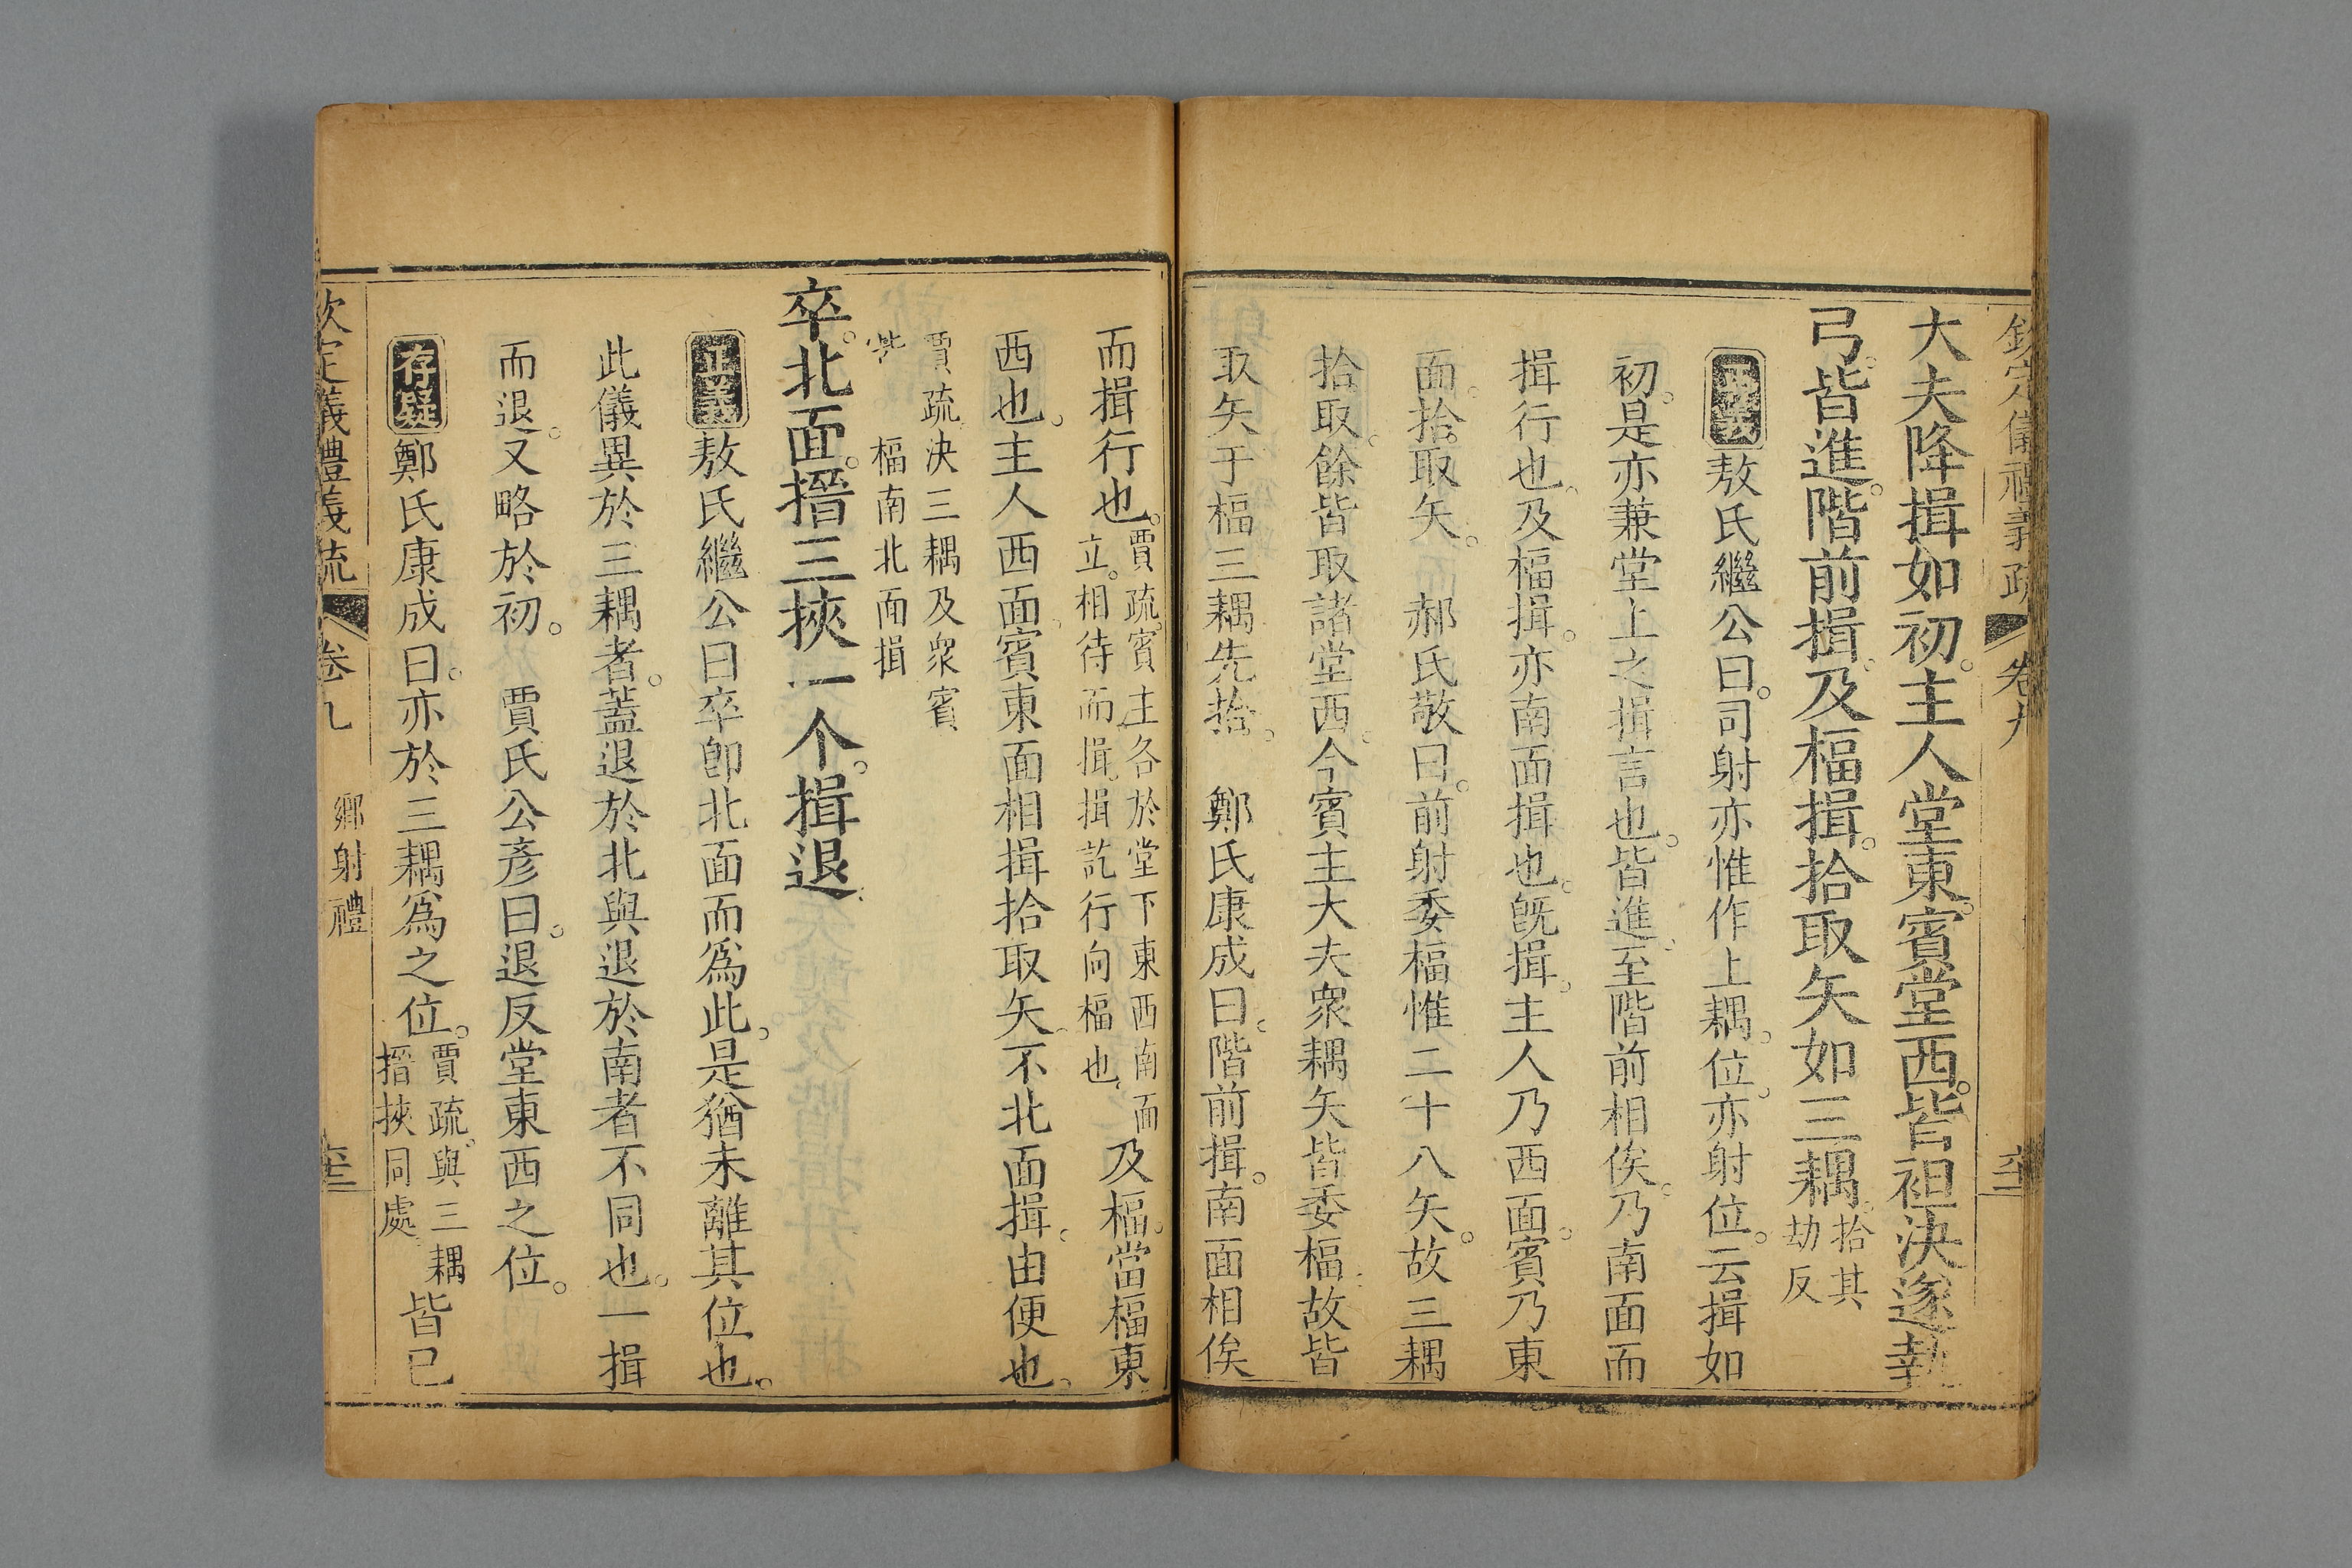 欽定儀禮義疏 卷九
大夫降揖如初。主人堂東。賓堂西。皆袒決遂執
弓。皆進。階前揖。及楅揖。拾取矢如三耦。拾其劫反
正義敖氏繼公曰。司射亦惟作上耦。位亦射位。云揖如
初。是亦兼堂上之揖言也。皆進。至階前相俟。乃南面而
揖行也。及楅揖。亦南面揖也。旣揖。主人乃西面。賓乃東
面。拾取矢。 郝氏敬曰。前射委楅惟二十八矢。故三耦
拾取。餘皆取諸堂西。今賓主大夫衆耦矢皆委楅故皆
取矢于楅三耦先拾。 鄭氏康成曰。階前揖。南面相俟
而揖行也。賈疏。賓主各於堂下東西南面立。相待而揖。揖訖行向楅也。及楅。當楅東
西也。主人西面。賓東面相揖拾取矢。不北面揖。由便也。
賈疏。決三耦及衆賓皆楅南北面揖
卒。北面。搢三挾一个。揖退。
正義敖氏繼公曰卒卽北面而爲此。是猶未離其位也。
此儀異於三耦者。蓋退於北與退於南者不同也。一揖
而退。又略於初。 賈氏公彥曰。退反堂東西之位。
存疑鄭氏康成曰。亦於三耦爲之位。賈疏。與三耦搢挾同處皆已
欽定儀禮義疏 卷九 鄉射禮